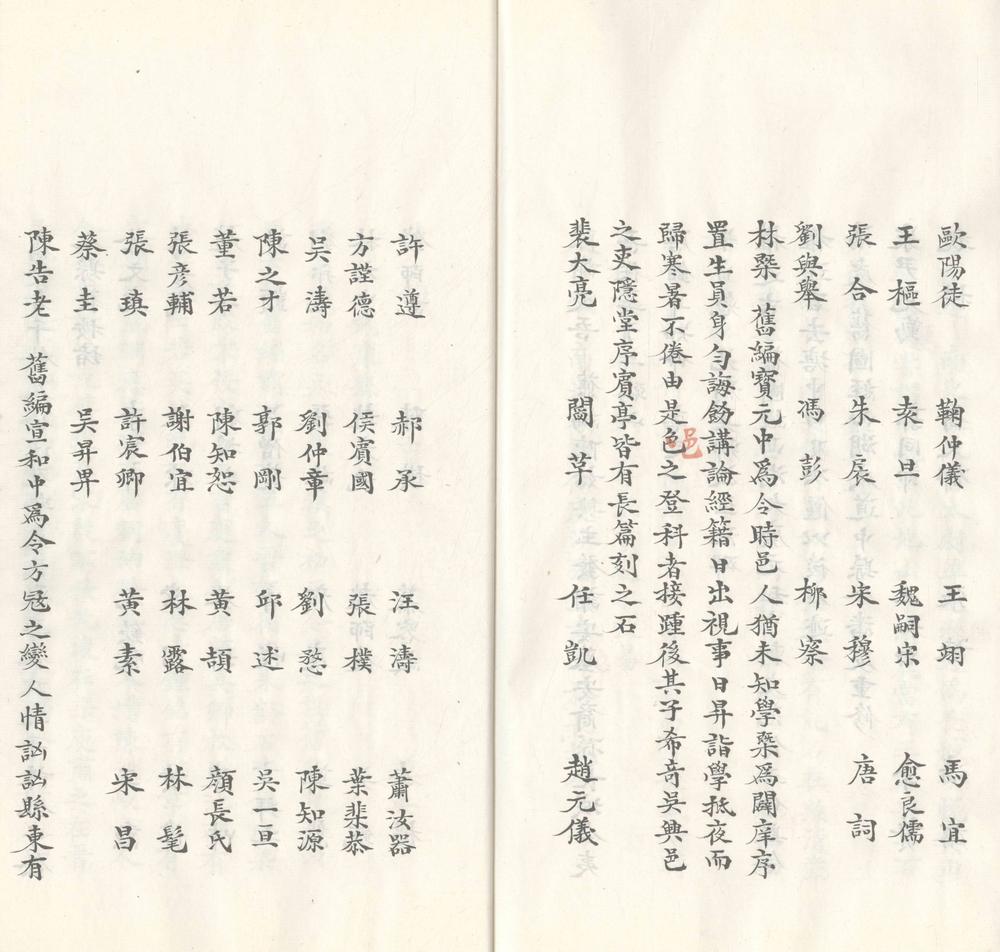 歐陽徒　鞠仲儀　王　翊　馬　宜
王　樞　袁　旦　魏嗣宗　愈良儒
張　合　朱　扆　宋　穆　唐　詞
劉與舉　馮　彭　柳　寀
林槩　舊編寶元中爲令時邑人猶未知學槩爲闢庠序
置生員身勻誨飭講論經籍日出視事日昇詣學抵夜而
歸寒暑不倦由是色之登科者接踵後其子希奇吳興邑
邑
之吏隱堂序賓亭皆有長篇刻之石
裴大亮　閻　草　任　凱　趙元儀
許　遵　郝　承　汪　濤　蕭汝器
方謹德　侯賓國　張　樸　葉棐恭
吳　濤　劉仲章　劉　愗　陳知源
陳之才　郭　剛　邱　述　吳一亘
董　若　陳知恕　黃　頡　顏長民
張彥輔　謝伯宜　林　露　林　髦
張　瑱　許宸卿　黃　素　宋　昌
蔡　圭　吳昇昇
陳告老　舊編宣和中爲令方冦之變人情訩訩縣東有